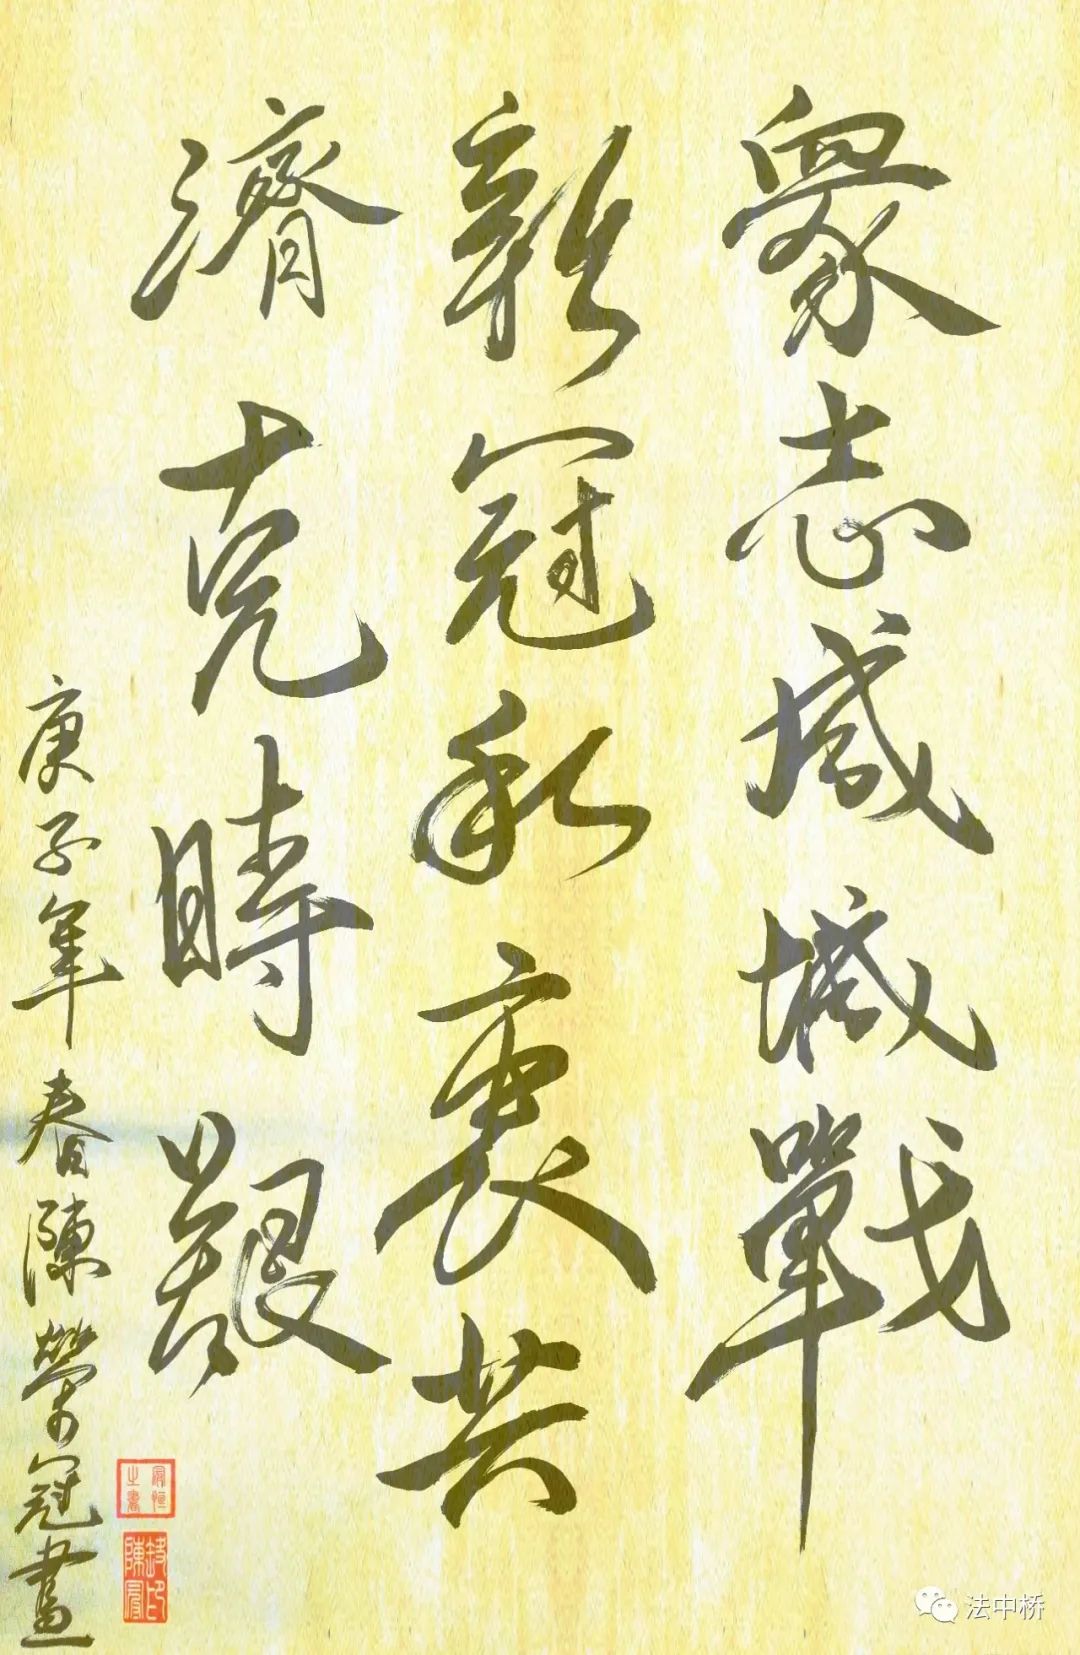 衆志成城戰
新冠和衷共
濟克時艱
庚子年春陳榮冠
法中桥